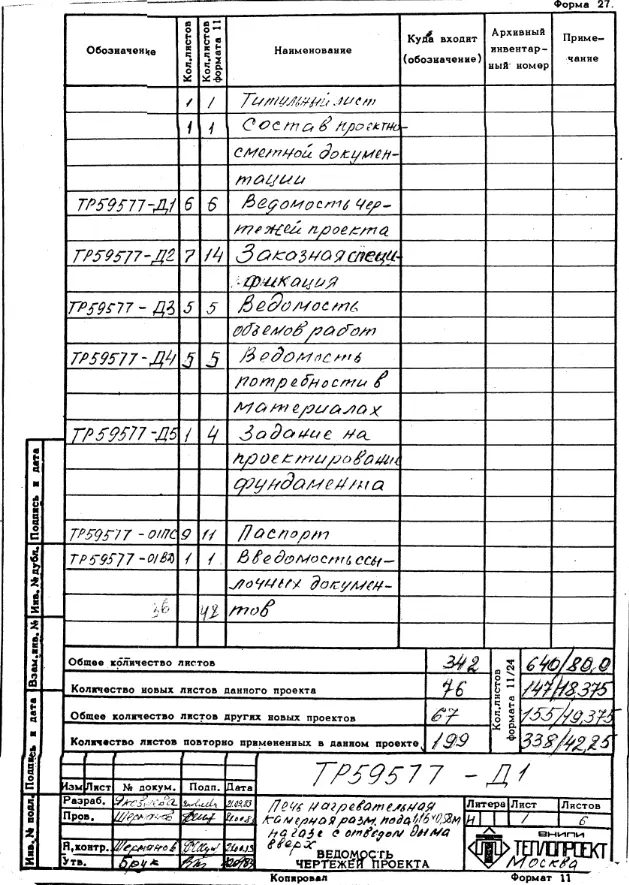 Форма 27.
Обозначение
Кол.листов
Кол.листов формата 11
Наименование
Куда входит (обозначение)
Архивный инвентар-ный номер
Приме-чание
1 1 Титульный лист
1 1 Состав проектно-
сметной докумен-
тации
ТР59577-Д1 6 6 Ведомость чер-
тежей проекта
ТР59577-Д2 7 14 Заказная специ-
фикация
ТР59577-Д3 5 5 Ведомость
объемов работ
ТР59577-Д4 5 5 Ведомость
потребности в
материалах
ТР59577-Д5 1 4 Задание на
проектирование
фундамента
ТР59577-01ПС 9 11 Паспорт
ТР59577-01ВД 1 1 Введомость ссы-
лочных докумен-
36 48 тов
Общее количество листов 342
Кол.листов формата 11/24
640/80,0
Количество новых листов данного проекта 76 147/18,375
Общее количество листов других новых проектов 67 155/19,375
Количество листов повторно примененных в данном проекте 199 338/42,25
Инв.№ подл. Подпись и дата Взам.инв.№ Инв.№ дубл. Подпись и дата
ТР59577-Д1
Изм Лист № докум. Подп. Дата
Разраб.
Пров.
Н.контр. Шерманов
Утв. Брук
Печь нагревательная
камерная разм. пода
на газе с отводом дыма
вверх
ВЕДОМОСТЬ
ЧЕРТЕЖЕЙ ПРОЕКТА
Литера Лист Листов
И 1 6
ВНИПИ
ТЕПЛОПРОЕКТ
Москва
Копировал Формат 11